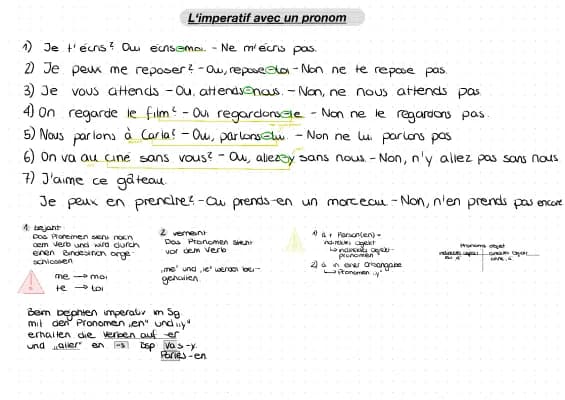 L'imperatif avec un pronom
1) Je t'écris? Oui écris-moi. - Ne m'écris pas.
2) Je peux me reposer? - Oui, repose-toi - Non ne te repose pas
3) Je vous attends - Oui attends-nous. - Non, ne nous attends pas
4) On regarde le film? - Oui regardons-le - Non ne le regardons pas
5) Nous parlons à Carla? - Oui, parlons-lui - Non ne lui parlons pas
6) On va au ciné sans vous? - Oui, allez-y sans nous. - Non, n'y allez pas sans nous
7) J'aime ce gâteau.
Je peux en prendre? - Oui prends-en un morceau - Non, n'en prends pas encore
1. bejaht
Das Pronomen steht nach
dem Verb und wird durch
einen Bindestrich ange-
schlossen
me → moi
te → toi
2. verneint
Das Pronomen steht
vor dem Verb
"me" und "te" werden bei-
behalten.
1) à + Person(en) =
indirektes Objekt
↳ indirektes Objekt-
pronomen
2) à in einer Ortsangabe
↳ Pronomen "y"
Pronoms objet
Beim bejahten imperativ im Sg
mit den Pronomen "en" und "y"
erhalten die Verben auf -er
und "aller" ein -s Bsp Vas-y.
Parles-en